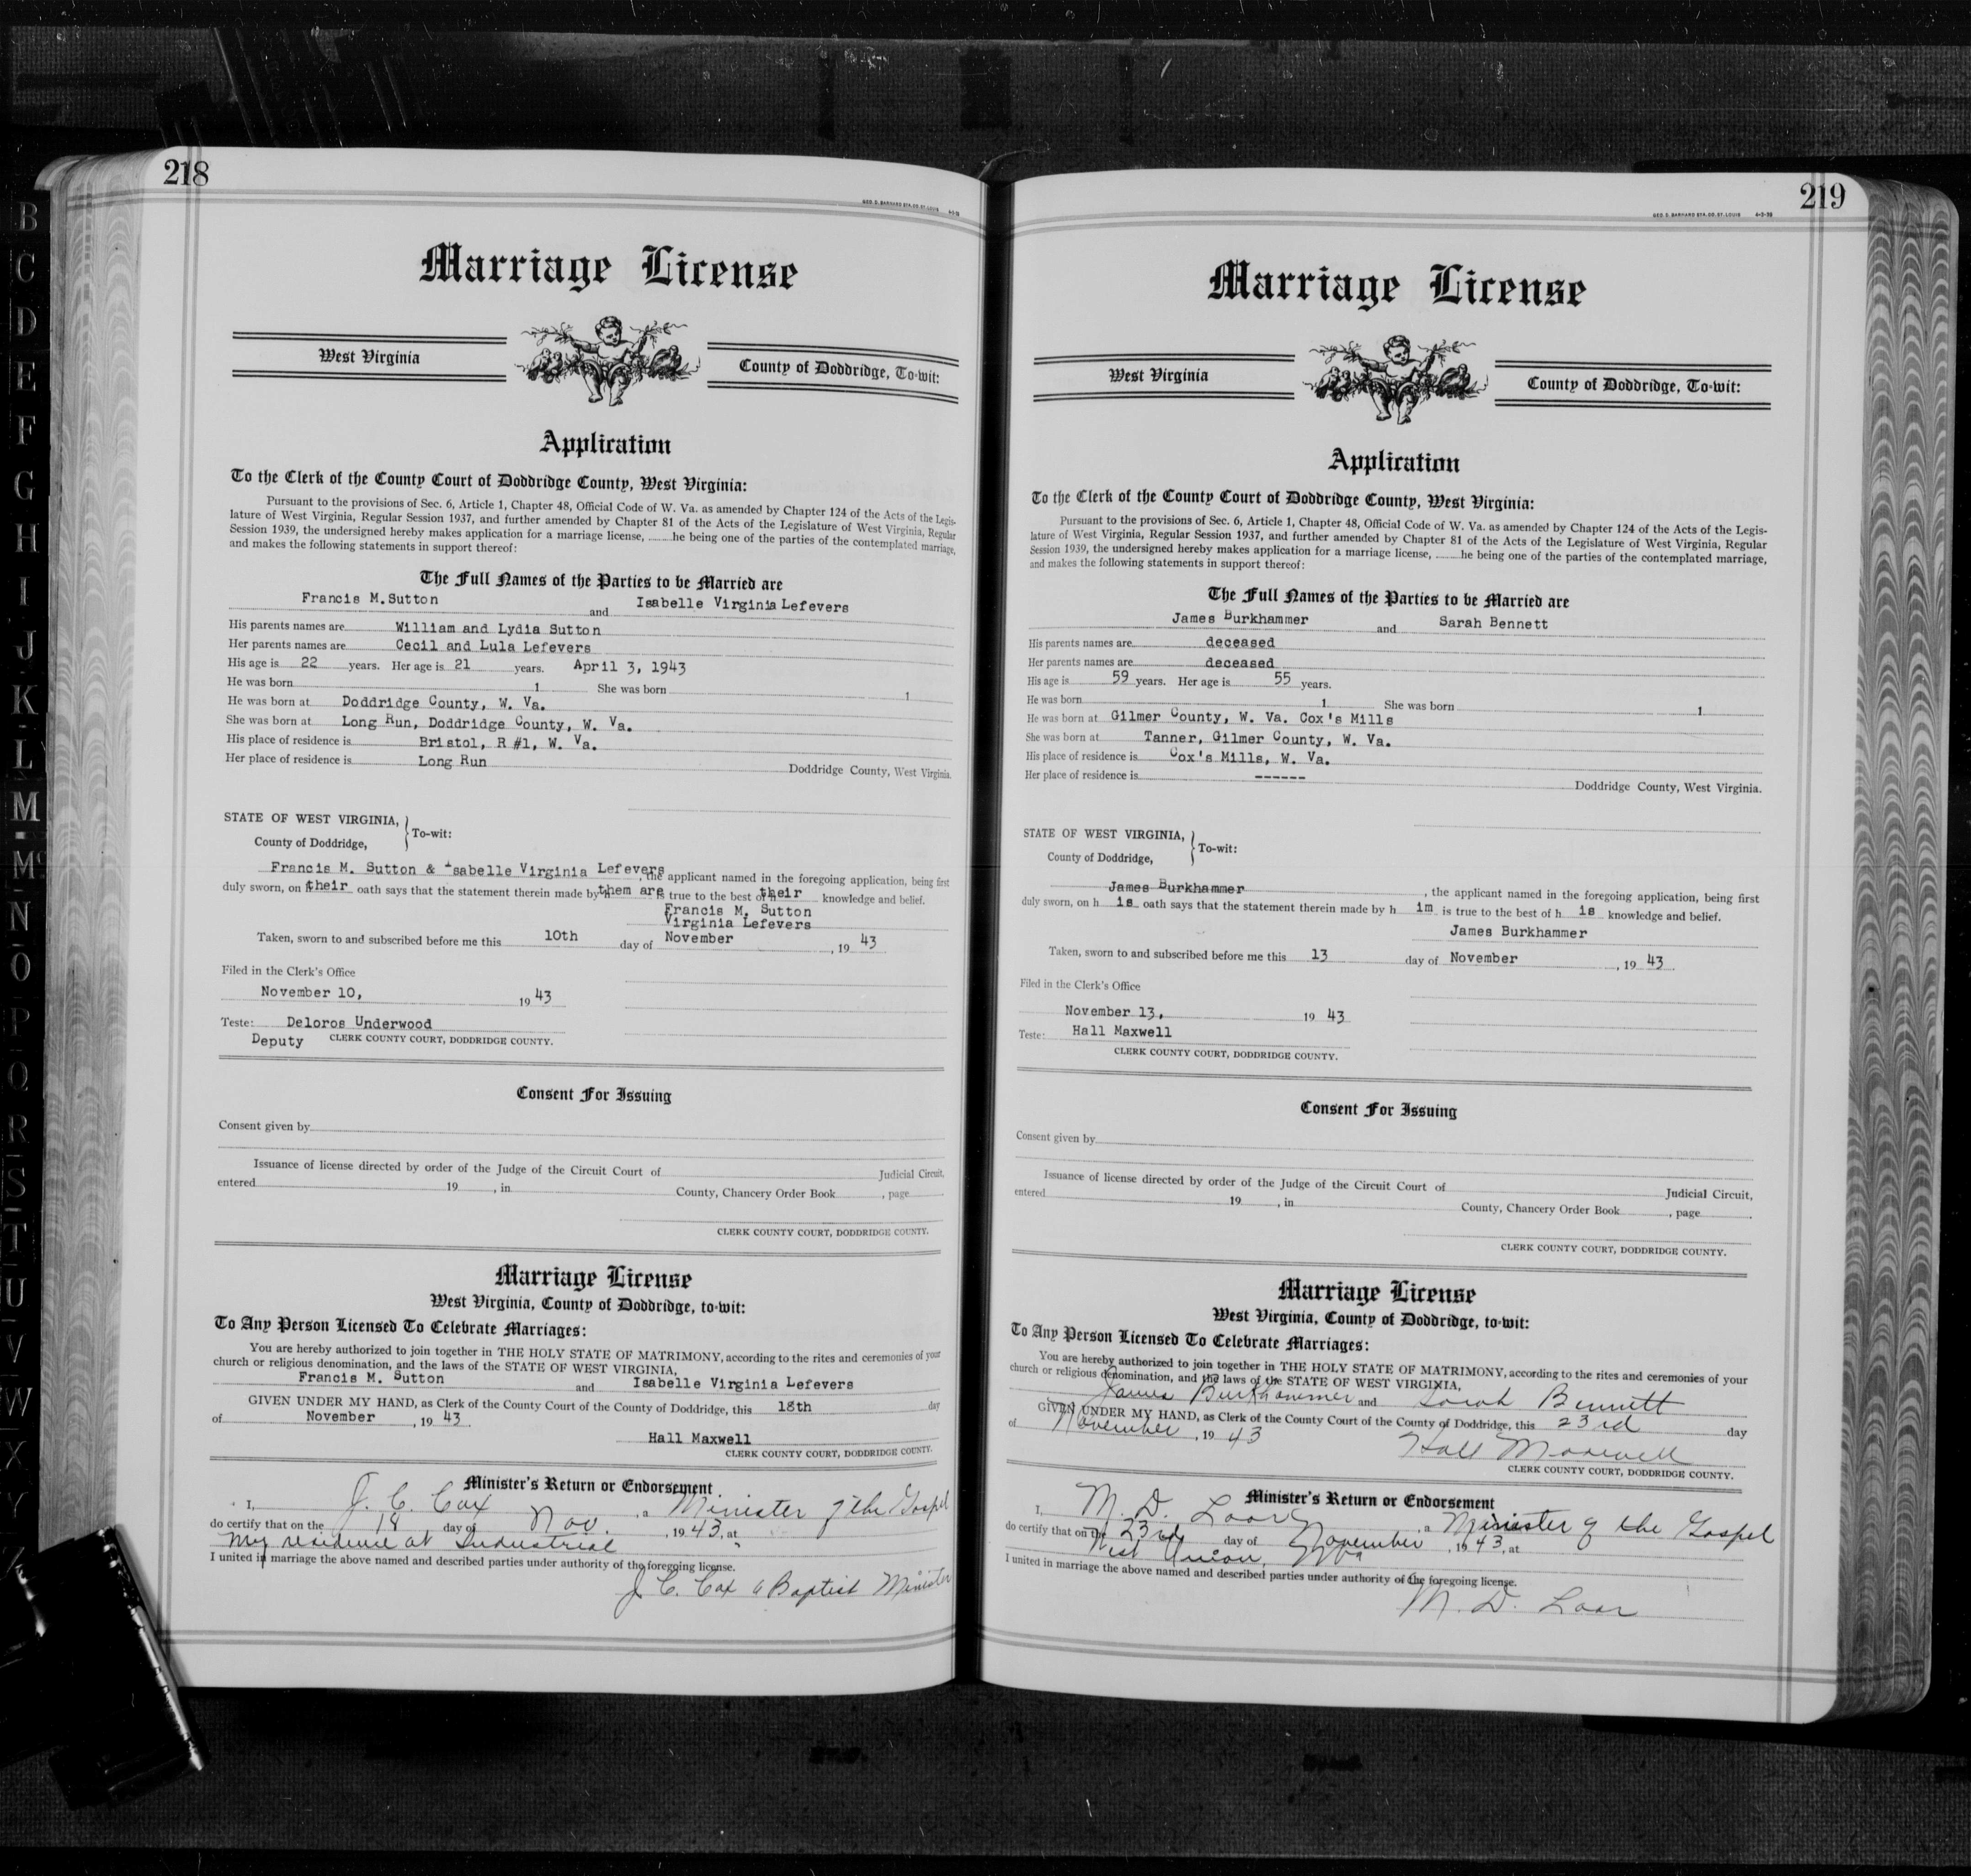 B
C
D
E
F
G
H
I
J
K
L
M
Mc
N
O
P
Q
R
S
T
U
V
W
X
Y
Z
218
GEO. D. BARNARD STA. CO. ST. LOUIS
Marriage License
West Virginia
County of Doddridge, To-wit:
Application
To the Clerk of the County Court of Doddridge County, West Virginia:
Pursuant to the provisions of Sec. 6, Article 1, Chapter 48, Official Code of W. Va. as amended by Chapter 124 of the Acts of the Legis-
lature of West Virginia, Regular Session 1937, and further amended by Chapter 81 of the Acts of the Legislature of West Virginia, Regular
Session 1939, the undersigned hereby makes application for a marriage license, ........he being one of the parties of the contemplated marriage,
and makes the following statements in support thereof:
The Full Names of the Parties to be Married are
Francis M. Sutton and Isabelle Virginia Lefevers
His parents names are William and Lydia Sutton
Her parents names are Cecil and Lula Lefevers
His age is 22 years. Her age is 21 years. April 3, 1943
He was born 1 She was born 1
He was born at Doddridge County, W. Va.
She was born at Long Run, Doddridge County, W. Va.
His place of residence is Bristol, R #1, W. Va.
Her place of residence is Long Run Doddridge County, West Virginia.
STATE OF WEST VIRGINIA,
County of Doddridge, } To-wit:
Francis M. Sutton & Isabelle Virginia Lefevers, the applicant named in the foregoing application, being first
duly sworn, on their oath says that the statement therein made by them are is true to the best of their knowledge and belief.
Francis M. Sutton
Virginia Lefevers
Taken, sworn to and subscribed before me this 10th day of November, 19 43
Filed in the Clerk's Office
November 10, 19 43
Teste: Deloros Underwood
Deputy CLERK COUNTY COURT, DODDRIDGE COUNTY.
Consent For Issuing
Consent given by
Issuance of license directed by order of the Judge of the Circuit Court of Judicial Circuit,
entered 19 , in County, Chancery Order Book , page
CLERK COUNTY COURT, DODDRIDGE COUNTY.
Marriage License
West Virginia, County of Doddridge, to-wit:
To Any Person Licensed To Celebrate Marriages:
You are hereby authorized to join together in THE HOLY STATE OF MATRIMONY, according to the rites and ceremonies of your
church or religious denomination, and the laws of the STATE OF WEST VIRGINIA,
Francis M. Sutton and Isabelle Virginia Lefevers
GIVEN UNDER MY HAND, as Clerk of the County Court of the County of Doddridge, this 18th day
of November, 19 43
Hall Maxwell
CLERK COUNTY COURT, DODDRIDGE COUNTY.
Minister's Return or Endorsement
I, J. C. Cox, a Minister of the Gospel
do certify that on the 18 day of Nov., 19 43, at
My residence at Industrial
I united in marriage the above named and described parties under authority of the foregoing license.
J. C. Cox a Baptist Minister
219
GEO. D. BARNARD STA. CO. ST. LOUIS 4-3-39
Marriage License
West Virginia
County of Doddridge, To-wit:
Application
To the Clerk of the County Court of Doddridge County, West Virginia:
Pursuant to the provisions of Sec. 6, Article 1, Chapter 48, Official Code of W. Va. as amended by Chapter 124 of the Acts of the Legis-
lature of West Virginia, Regular Session 1937, and further amended by Chapter 81 of the Acts of the Legislature of West Virginia, Regular
Session 1939, the undersigned hereby makes application for a marriage license, ........he being one of the parties of the contemplated marriage,
and makes the following statements in support thereof:
The Full Names of the Parties to be Married are
James Burkhammer and Sarah Bennett
His parents names are deceased
Her parents names are deceased
His age is 59 years. Her age is 55 years.
He was born 1 She was born 1
He was born at Gilmer County, W. Va. Cox's Mills
She was born at Tanner, Gilmer County, W. Va.
His place of residence is Cox's Mills, W. Va.
Her place of residence is ------ Doddridge County, West Virginia.
STATE OF WEST VIRGINIA,
County of Doddridge, } To-wit:
James Burkhammer, the applicant named in the foregoing application, being first
duly sworn, on h is oath says that the statement therein made by h im is true to the best of h is knowledge and belief.
James Burkhammer
Taken, sworn to and subscribed before me this 13 day of November, 19 43
Filed in the Clerk's Office
November 13, 19 43
Teste: Hall Maxwell
CLERK COUNTY COURT, DODDRIDGE COUNTY.
Consent For Issuing
Consent given by
Issuance of license directed by order of the Judge of the Circuit Court of Judicial Circuit,
entered 19 , in County, Chancery Order Book , page
CLERK COUNTY COURT, DODDRIDGE COUNTY.
Marriage License
West Virginia, County of Doddridge, to-wit:
To Any Person Licensed To Celebrate Marriages:
You are hereby authorized to join together in THE HOLY STATE OF MATRIMONY, according to the rites and ceremonies of your
church or religious denomination, and the laws of the STATE OF WEST VIRGINIA,
James Burkhammer and Sarah Bennett
GIVEN UNDER MY HAND, as Clerk of the County Court of the County of Doddridge, this 23rd day
of November, 19 43
Hall Maxwell
CLERK COUNTY COURT, DODDRIDGE COUNTY.
Minister's Return or Endorsement
I, M. D. Loar, a Minister of the Gospel
do certify that on the 23rd day of November, 19 43, at
West Union, W Va
I united in marriage the above named and described parties under authority of the foregoing license.
M. D. Loar